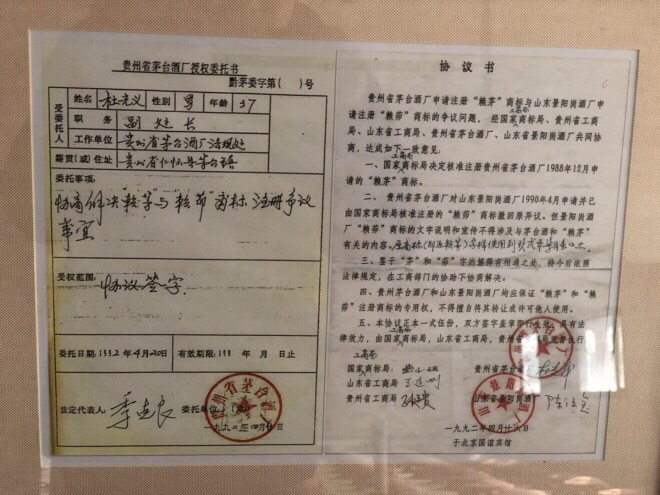 贵州省茅台酒厂授权委托书
黔茅委字第( )号
受委托人
姓名 杜光义 性别 男 年龄 37
职务 副处长
工作单位 贵州省茅台酒厂法规处
籍贯(或)住址 贵州省仁怀县茅台镇
委托事项:
协商解决"赖茅"与"赖茆"商标注册争议
事宜
受权范围:
协议签字
委托日期 1992年4月20日 有效期限:199 年 月 日止
法定代表人 季克良 委托单位
贵州省茅台酒厂
一九九二年四月 日
协议书
贵州省茅台酒厂申请注册"赖茅"商标与山东景阳岗酒厂申
请注册"赖茆"商标的争议问题,经国家工商局商标局、贵州省工商局、
山东省工商局、贵州省茅台酒厂、山东省景阳岗酒厂共同协
商,达成如下一致意见:
一、国家工商局商标局决定核准注册贵州省茅台酒厂1988年12月申
请的"赖茅"商标。
二、贵州省茅台酒厂对山东景阳岗酒厂1990年4月申请并已
由国家商标局核准注册的"赖茆"商标撤回原异议。但景阳岗酒
厂"赖茆"商标的文字说明和宣传不得涉及与茅台酒和"赖茅"
有关的内容。
三、鉴于"茅"和"茆"字的解释有相通之处,待今后依照
法律规定,在工商部门的协助下协商解决。
四、贵州茅台酒厂和山东景阳岗酒厂均应保证"赖茅"和"赖
茆"注册商标的专用权,不得擅自将其转让或许可他人使用。
五、本协议正本一式伍份,双方签字盖章即行生效,具有法
律效力,由国家工商局商标局、山东省工商局、贵州省工商局监督执行
国家工商局商标局: 贵州省茅台酒厂
山东省工商局
贵州省工商局 山东景阳岗酒厂
一九九二年四月廿八日
于北京国谊宾馆